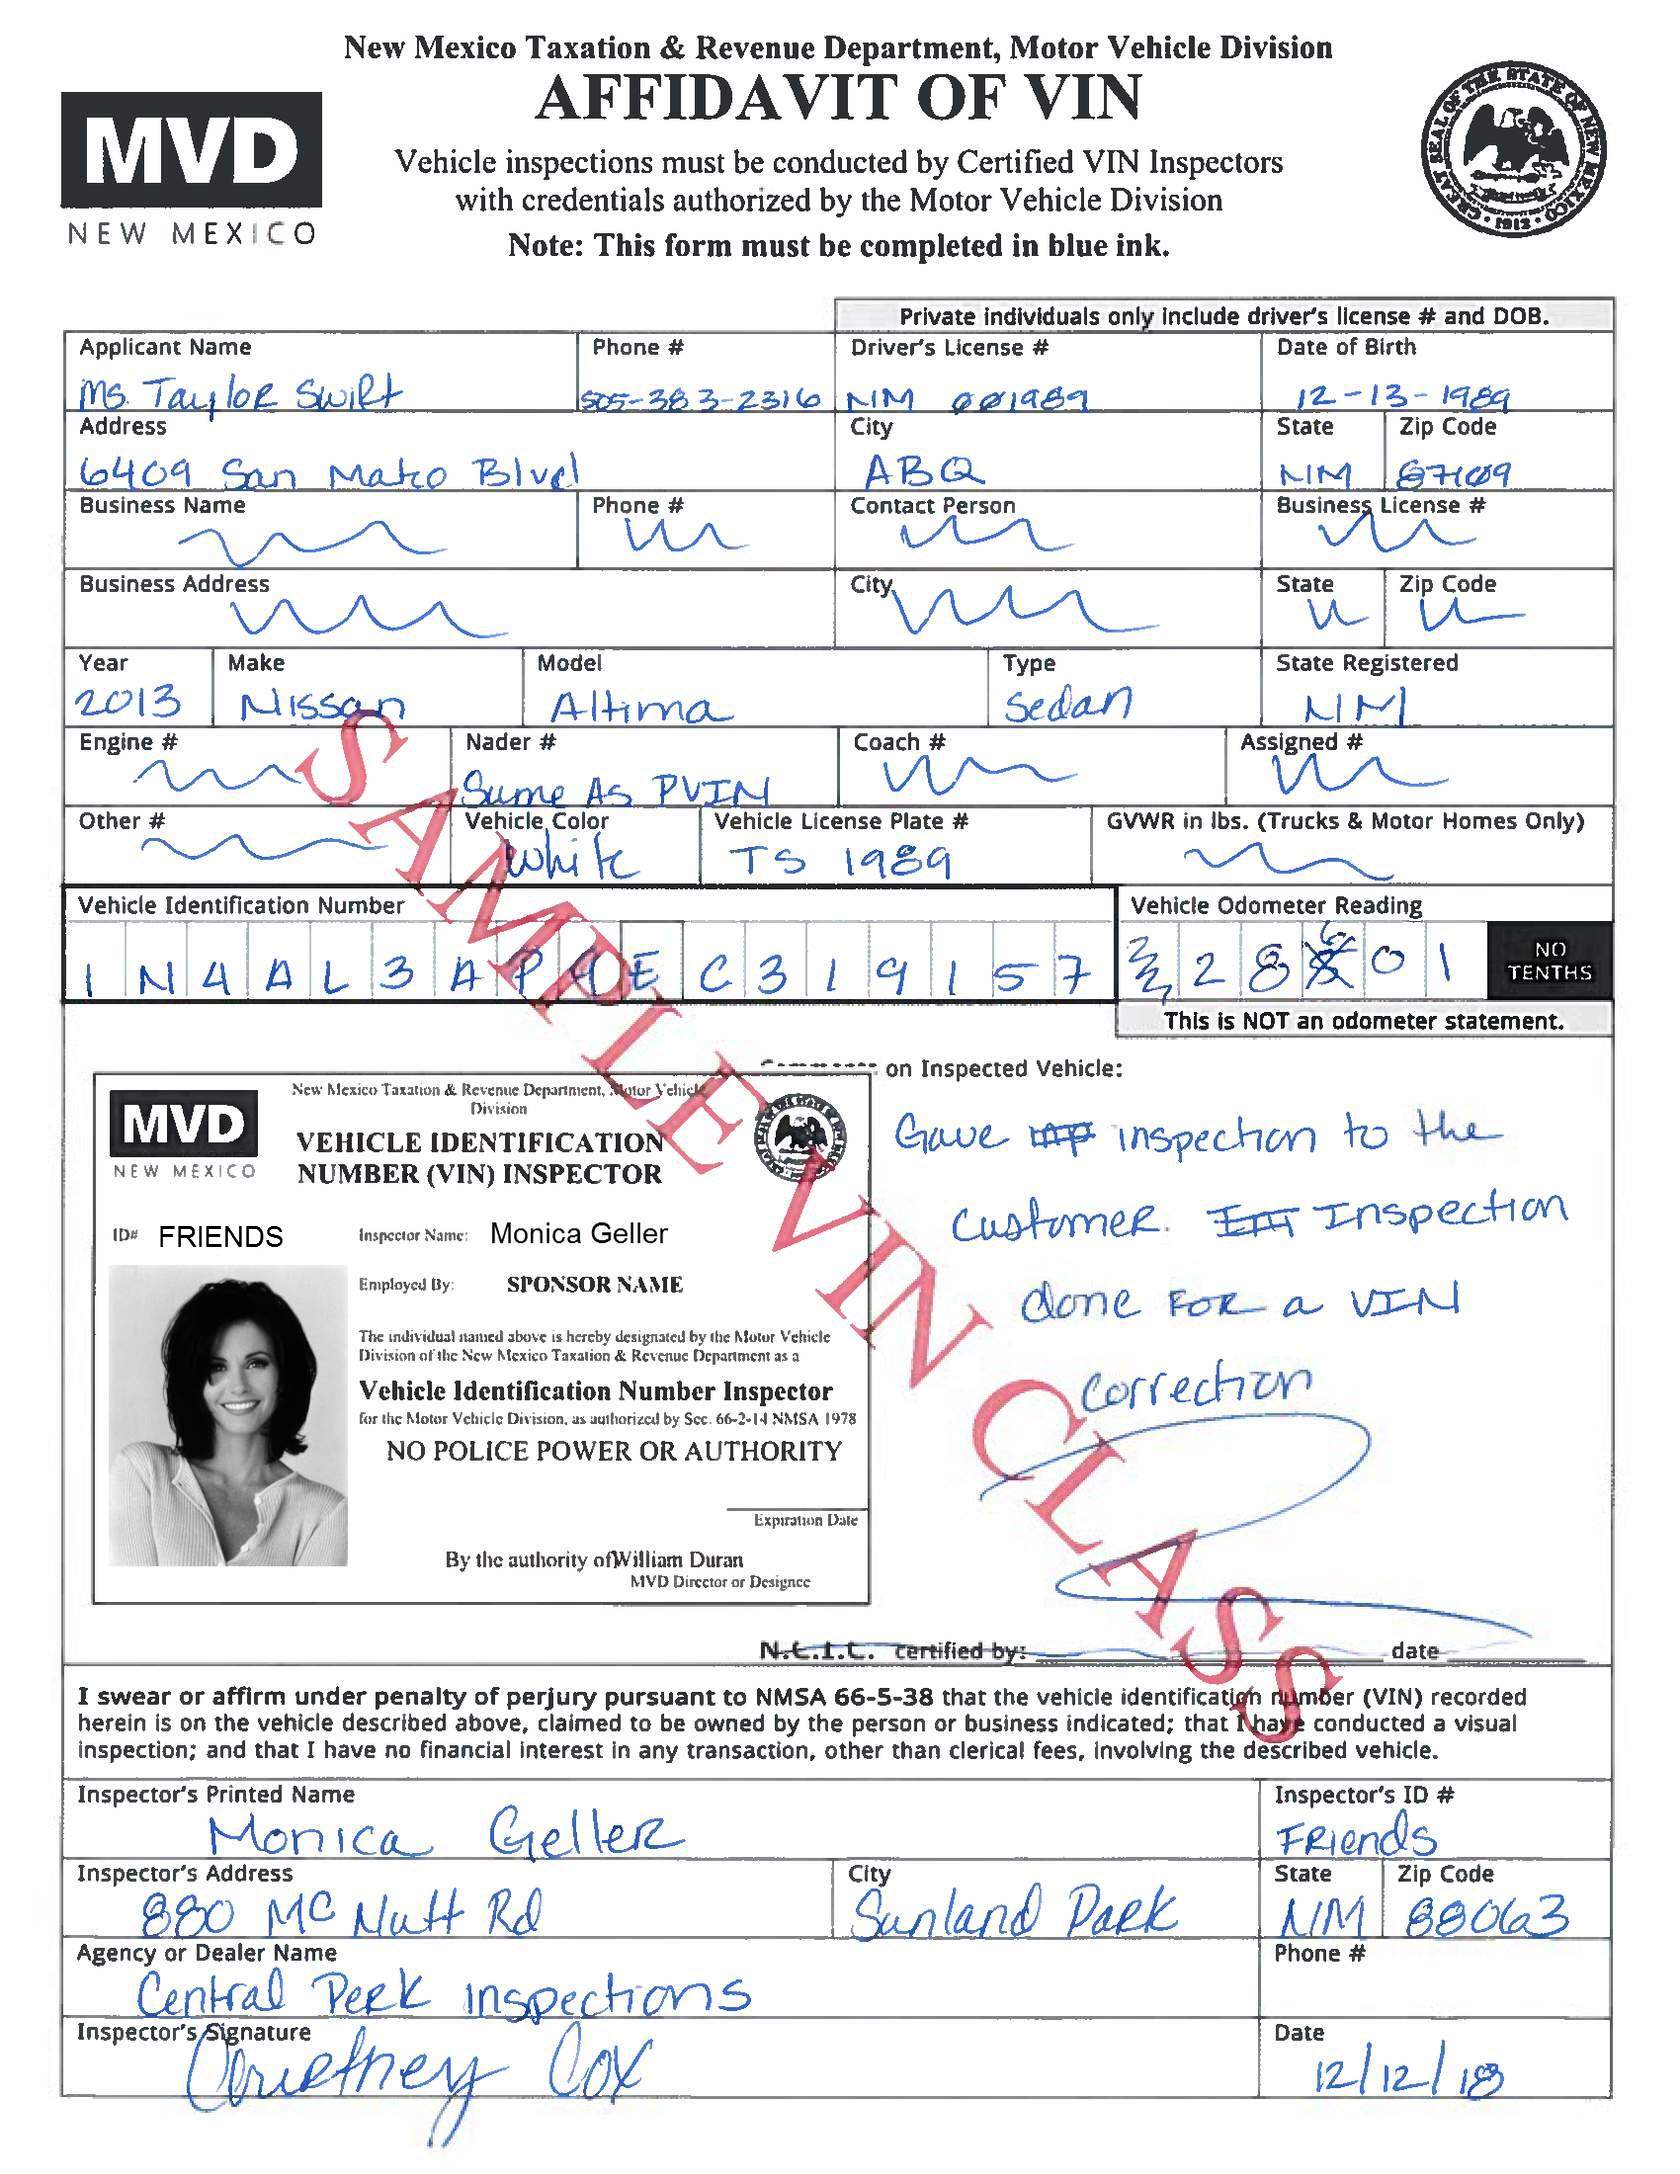 New Mexico Taxation & Revenue Department, Motor Vehicle Division
AFFIDAVIT OF VIN
MVD
NEW MEXICO
Vehicle inspections must be conducted by Certified VIN Inspectors
with credentials authorized by the Motor Vehicle Division
Note: This form must be completed in blue ink.
GREAT SEAL OF THE STATE OF NEW MEXICO
1912
Private individuals only include driver's license # and DOB.
Applicant Name Phone # Driver's License # Date of Birth
Ms. Taylor Swift 505-383-2316 NM 001989 12-13-1989
Address City State Zip Code
6409 San Mateo Blvd ABQ NM 87109
Business Name Phone # Contact Person Business License #
Business Address City State Zip Code
Year Make Model Type State Registered
2013 Nissan Altima Sedan NM
Engine # Nader # Coach # Assigned #
Same As PVIN
Other # Vehicle Color Vehicle License Plate # GVWR in lbs. (Trucks & Motor Homes Only)
White TS 1989
Vehicle Identification Number Vehicle Odometer Reading
1 N 4 A L 3 A P E C 3 1 9 1 5 7 2 8 6 0 1 NO TENTHS
This is NOT an odometer statement.
on Inspected Vehicle:
Gave inspection to the
customer. Inspection
done FOR a VIN
correction
New Mexico Taxation & Revenue Department, Motor Vehicle
Division
MVD
NEW MEXICO
VEHICLE IDENTIFICATION
NUMBER (VIN) INSPECTOR
ID# FRIENDS Inspector Name: Monica Geller
Employed By: SPONSOR NAME
The individual named above is hereby designated by the Motor Vehicle
Division of the New Mexico Taxation & Revenue Department as a
Vehicle Identification Number Inspector
for the Motor Vehicle Division, as authorized by Sec. 66-2-14 NMSA 1978
NO POLICE POWER OR AUTHORITY
Expiration Date
By the authority of William Duran
MVD Director or Designee
N.C.I.C. certified by: date
I swear or affirm under penalty of perjury pursuant to NMSA 66-5-38 that the vehicle identification number (VIN) recorded
herein is on the vehicle described above, claimed to be owned by the person or business indicated; that I have conducted a visual
inspection; and that I have no financial interest in any transaction, other than clerical fees, involving the described vehicle.
Inspector's Printed Name Inspector's ID #
Monica Geller Friends
Inspector's Address City State Zip Code
880 Mc Nutt Rd Sunland Park NM 88063
Agency or Dealer Name Phone #
Central Perk inspections
Inspector's Signature Date
Courtney Cox 12/12/18
SAMPLE VIN CLASS